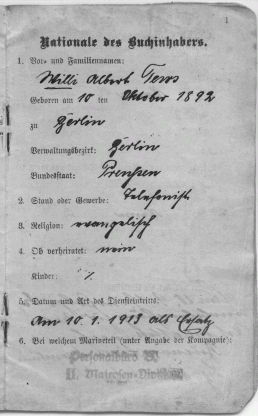 1
Nationale des Buchinhabers.
1. Vor- und Familiennamen:
Willi Albert Tews
Geboren am 10 ten Oktober 1892
zu Berlin
Verwaltungsbezirk: Berlin
Bundesstaat: Preußen
2. Stand oder Gewerbe: Telefonist
3. Religion: evangelisch
4. Ob verheiratet: nein
Kinder: %
5. Datum und Art des Diensteintritts:
Am 10. 1. 1913 als Ersatz
6. Bei welchem Marineteil (unter Angabe der Kompagnie):
Personalbüro
II. Matrosen-Division